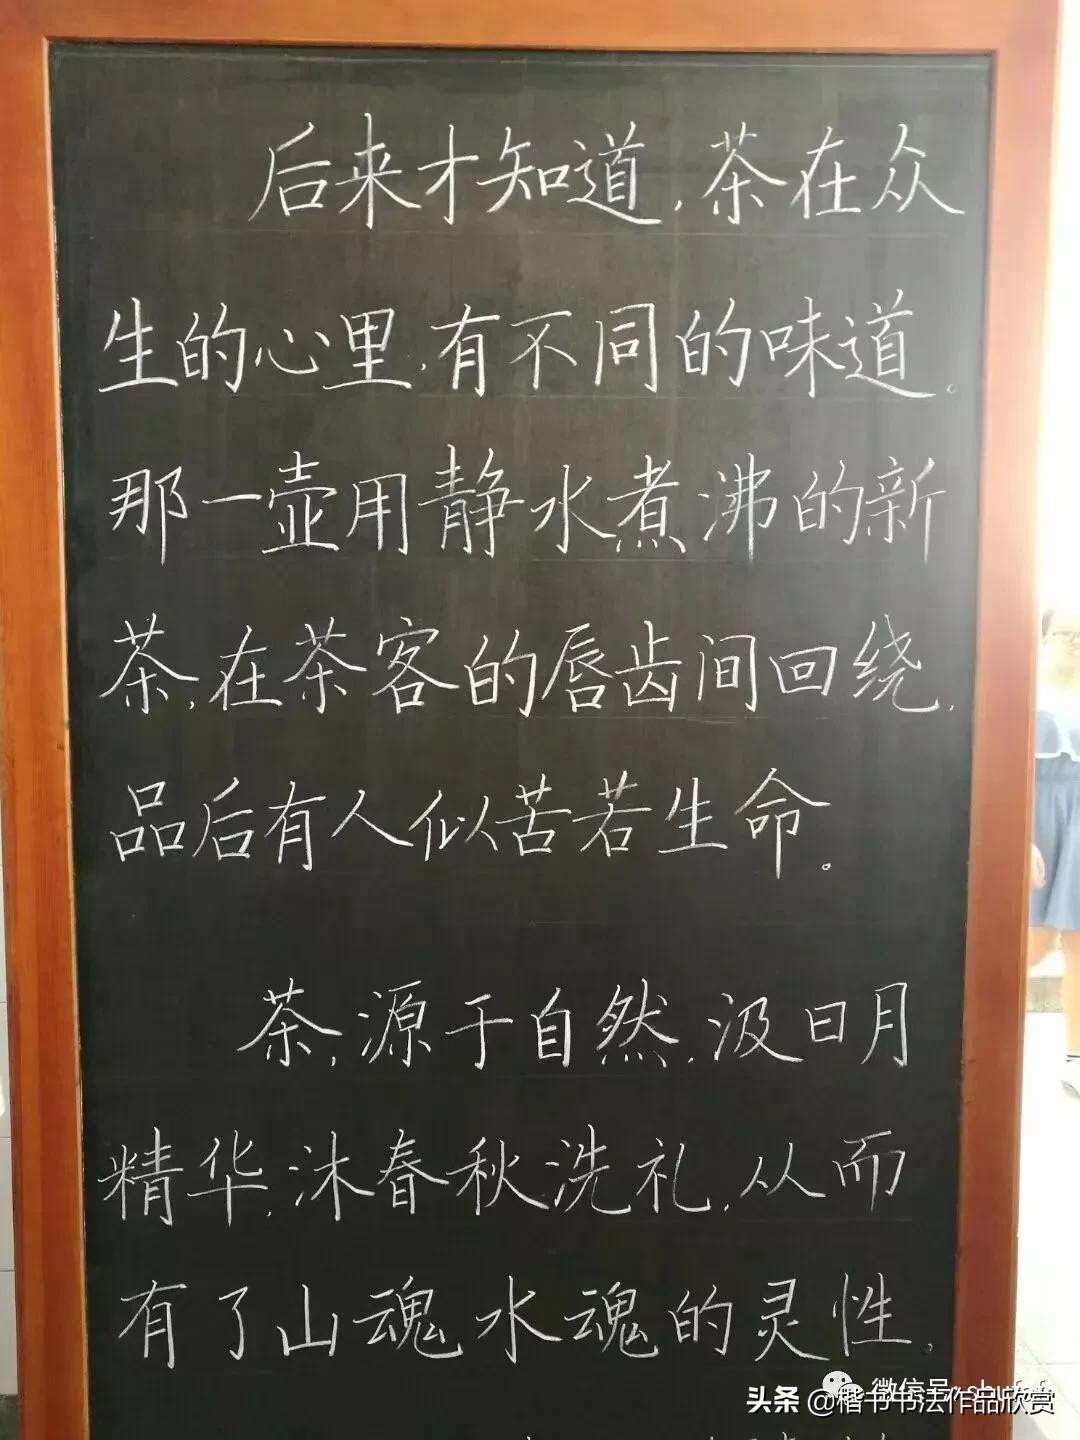 后来才知道,茶在众
生的心里,有不同的味道。
那一壶用静水煮沸的新
茶,在茶客的唇齿间回绕,
品后有人似苦若生命。
茶,源于自然,汲日月
精华,沐春秋洗礼,从而
有了山魂水魂的灵性。
微信号:
头条 @楷书书法作品欣赏